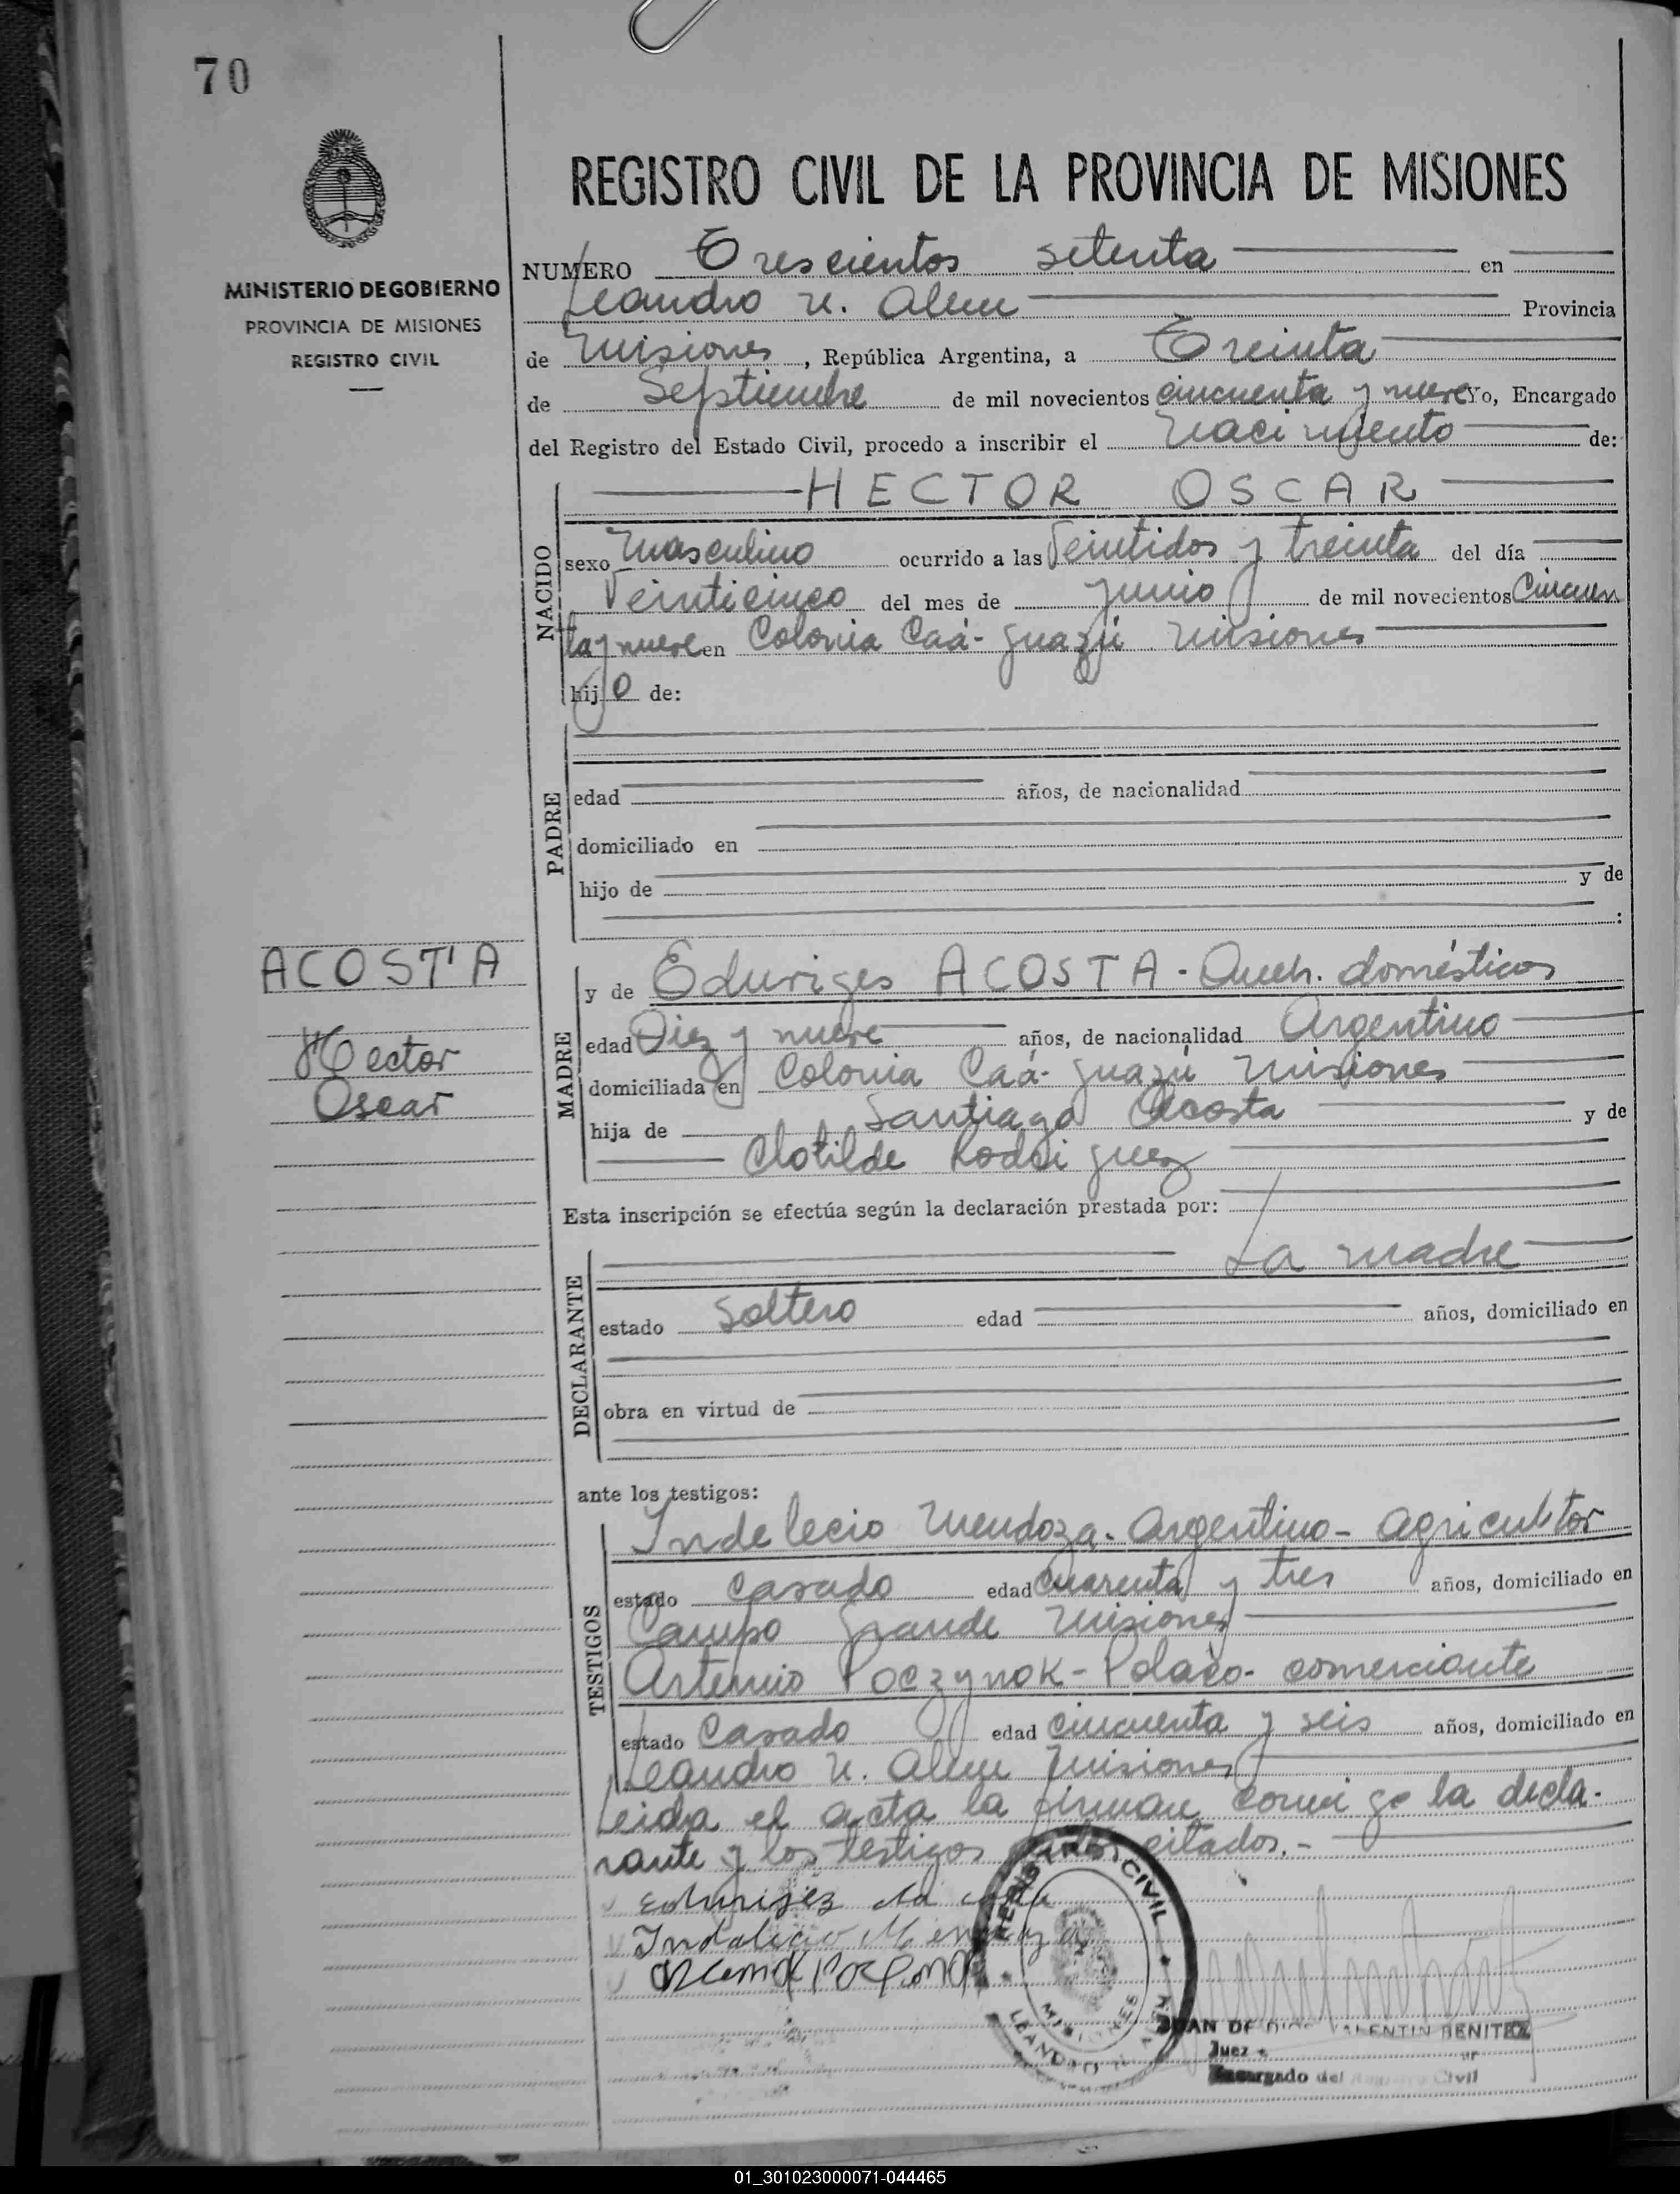 70
MINISTERIO DE GOBIERNO
PROVINCIA DE MISIONES
REGISTRO CIVIL
REGISTRO CIVIL DE LA PROVINCIA DE MISIONES
NUMERO Trescientos setenta en
Leandro N. Alem Provincia
de Misiones, República Argentina, a Treinta
de Septiembre de mil novecientos cincuenta y nueve Yo, Encargado
del Registro del Estado Civil, procedo a inscribir el Nacimiento de:
NACIDO
HECTOR OSCAR
sexo Masculino ocurrido a las Veintidos y treinta del día
Veinticinco del mes de Junio de mil novecientos Cincuen
ta y nueve en Colonia Caá-Guazú Misiones
hijo de:
PADRE
edad años, de nacionalidad
domiciliado en
hijo de y de
:
ACOSTA
Hector
Oscar
MADRE
y de Eduriges ACOSTA - Queh. domésticos
edad Diez y nueve años, de nacionalidad Argentino
domiciliada en Colonia Caá-Guazú Misiones
hija de Santiago Acosta y de
Clotilde Rodriguez
Esta inscripción se efectúa según la declaración prestada por:
DECLARANTE
La madre
estado Soltero edad años, domiciliado en
obra en virtud de
ante los testigos:
TESTIGOS
Indelecio Mendoza - Argentino - Agricultor
estado Casado edad Cuarenta y tres años, domiciliado en
Campo Grande Misiones
Artemio Poczynok - Polaco - comerciante
estado Casado edad cincuenta y seis años, domiciliado en
Leandro N. Alem Misiones
Leida el acta la firman conmigo la decla-
rante y los testigos citados.-
Indalecio Mendoza
REGISTRO CIVIL
MISIONES
LEANDRO N. ALEM
JUAN DE DIOS VALENTIN BENITEZ
Juez
Encargado del Registro Civil
01_301023000071-044465